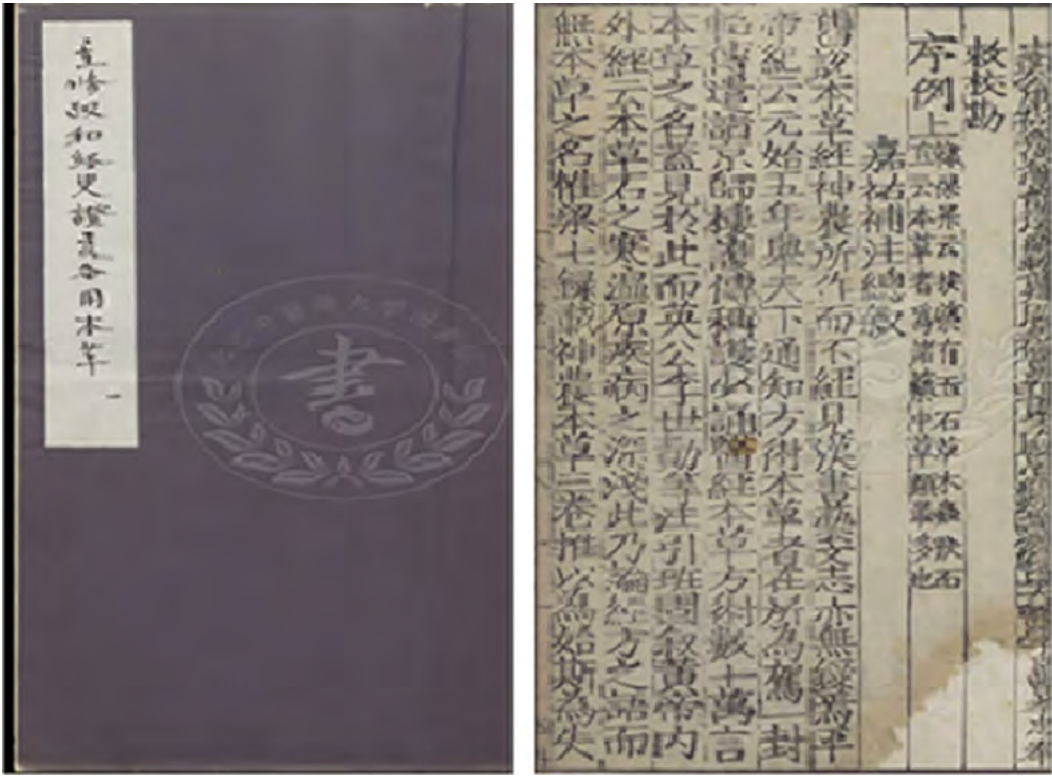 重修政和經史證類备用本草
一
書
敕校勘
序例上
保昇云按藥有玉石草木蟲獸而
直云本草者為諸藥中草類眾多也
嘉祐補注總敘
舊說本草經神農所作而不經見漢書藝文志亦無錄焉平
帝紀云元始五年舉天下通知方術本草者在所為駕一封
軺傳遣詣京師樓護傳稱護少誦醫經本草方術數十萬言
本草之名蓋見於此而英公李世勣等注引班固敘黃帝內
外經云本草石之寒溫原疾病之深淺此乃論經方之語而
無本草之名惟梁七錄載神農本草三卷推以為始斯為失